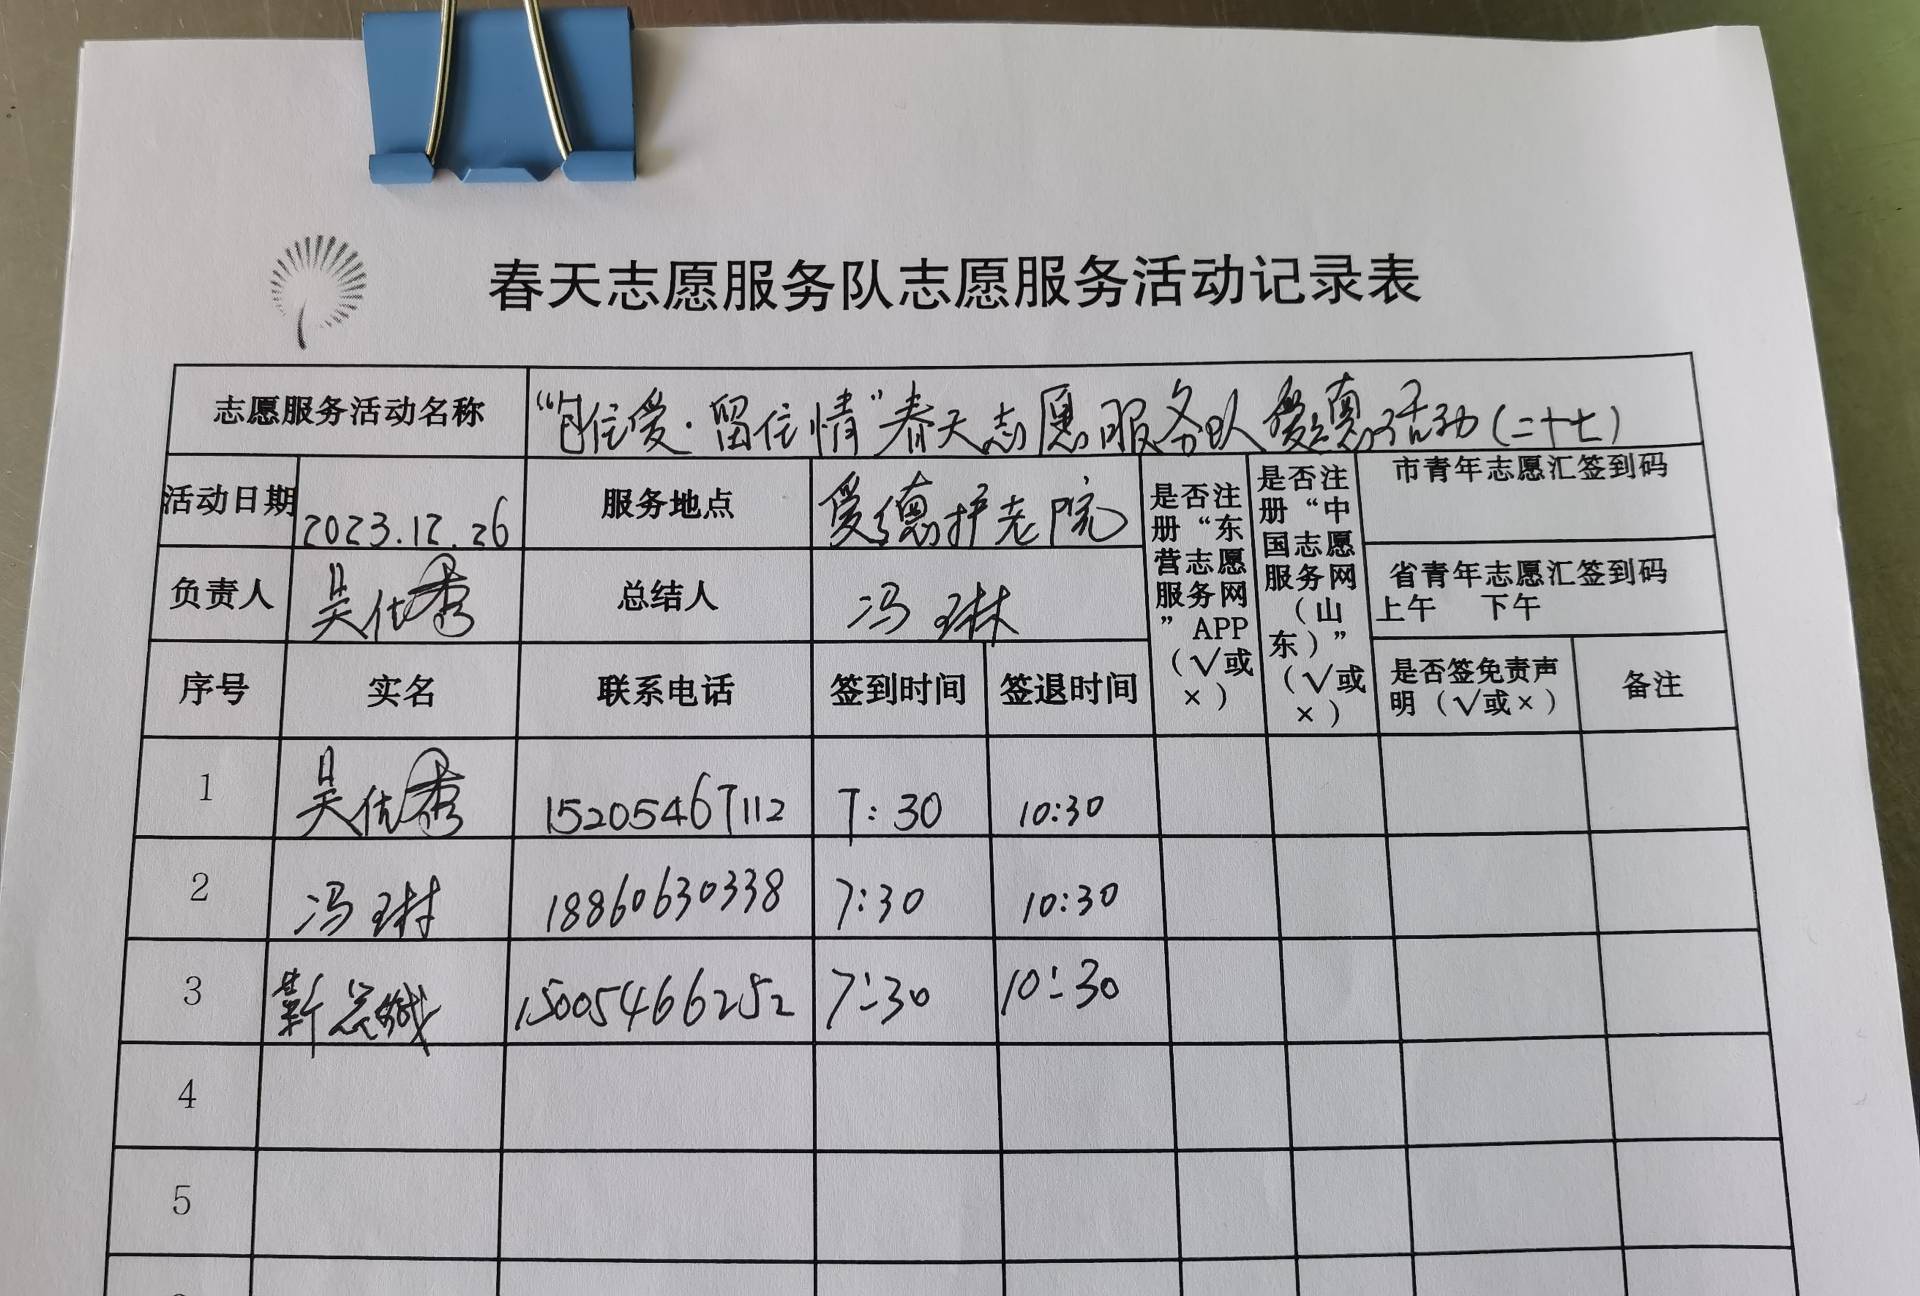 春天志愿服务队志愿服务活动记录表
志愿服务活动名称 “包住爱·留住情”春天志愿服务队爱德活动(二十七)
活动日期 2023.12.26 服务地点 爱德护老院
是否注册“东营志愿服务网”APP(√或×)
是否注册“中国志愿服务网(山东)”(√或×)
市青年志愿汇签到码
负责人 吴仕秀 总结人 冯琳
省青年志愿汇签到码
上午 下午
序号 实名 联系电话 签到时间 签退时间 是否签免责声明(√或×) 备注
1 吴仕秀 15205467112 7:30 10:30
2 冯琳 18860630338 7:30 10:30
3 15005466252 7:30 10:30
4
5